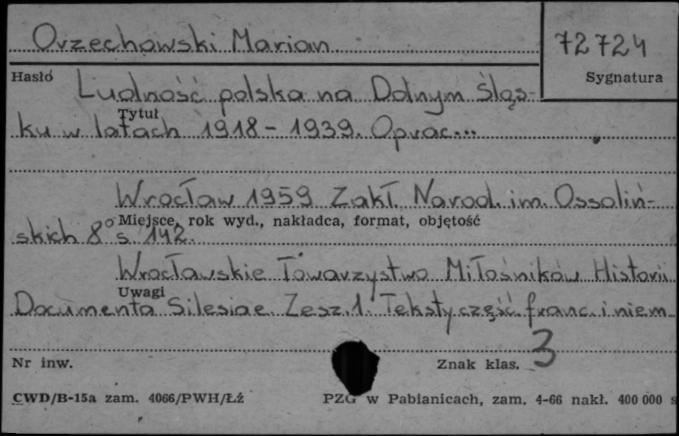 Orzechowski Marian
72724
Hasło
Sygnatura
Ludność polska na Dolnym Śląs-
Tytuł
ku w latach 1918 - 1939. Oprac...
Wrocław 1959 Zakł. Narod. im. Ossoliń-
Miejsce, rok wyd., nakładca, format, objętość
skich 8° s. 142.
Wrocławskie Towarzystwo Miłośników Historii
Uwagi
Documenta Silesiae. Zesz. 1. Teksty część. franc. i niem.
3
Nr inw.
Znak klas.
CWD/B-15a zam. 4066/PWH/Łż
PZG w Pabianicach, zam. 4-66 nakł. 400 000 s